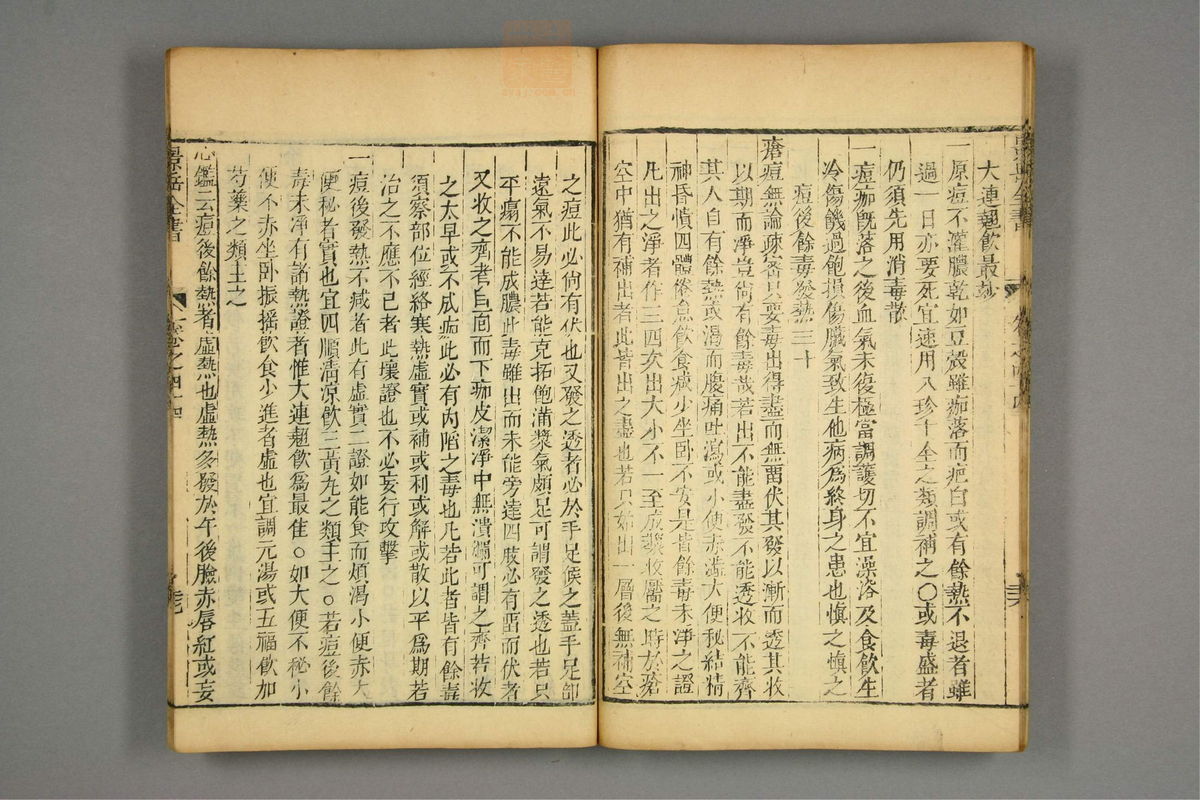 大連翹飲最妙
一原痘不灌膿乾如豆殼雖痂落而疤白或有餘熱不退者雖
過一日亦要死宜速用八珍十全之類調補之〇或毒盛者
仍須先用消毒散
一痘痂既落之後血氣未復極當調護切不宜澡浴及食飲生
冷傷饑過飽損傷臟氣致生他病爲終身之患也慎之慎之
痘後餘毒發熱三十
瘡痘無論疎密只要毒出得盡而無留伏其發以漸而透其收
以期而淨豈尚有餘毒哉若出不能盡發不能透收不能齊
其人自有餘熱或渴而腹痛吐瀉或小便赤澁大便秘結精
神昏憒四體倦怠飲食減少坐卧不安是皆餘毒未淨之證
凡出之淨者作三四次出大小不一至成漿收靨之時於瘡
空中猶有補出者此皆出之盡也若只如出一層後無補空
之痘此必尚有伏也又發之透者必於手足候之蓋手足部
遠氣不易達若能克拓飽滿漿氣頗足可謂發之透也若只
平塌不能成膿此毒雖出而未能旁達四肢必有留而伏者
又收之齊者自面而下痂皮潔淨中無潰爛可謂之齊若收
之太早或不成痂此必有内陷之毒也凡若此者皆有餘毒
須察部位經絡寒熱虛實或補或利或解或散以平爲期若
治之不應不已者此壞證也不必妄行攻擊
一痘後發熱不减者此有虛實二證如能食而煩渴小便赤大
便秘者實也宜四順清凉飲三黄丸之類主之〇若痘後餘
毒未淨有諸熱證者惟大連翹飲爲最佳〇如大便不秘小
便不赤坐卧振摇飲食少進者虛也宜調元湯或五福飲加
芍藥之類主之
心鑑云痘後餘熱者虛熱也虛熱多發於午後臉赤唇紅或妄
景岳全書
卷之四十四